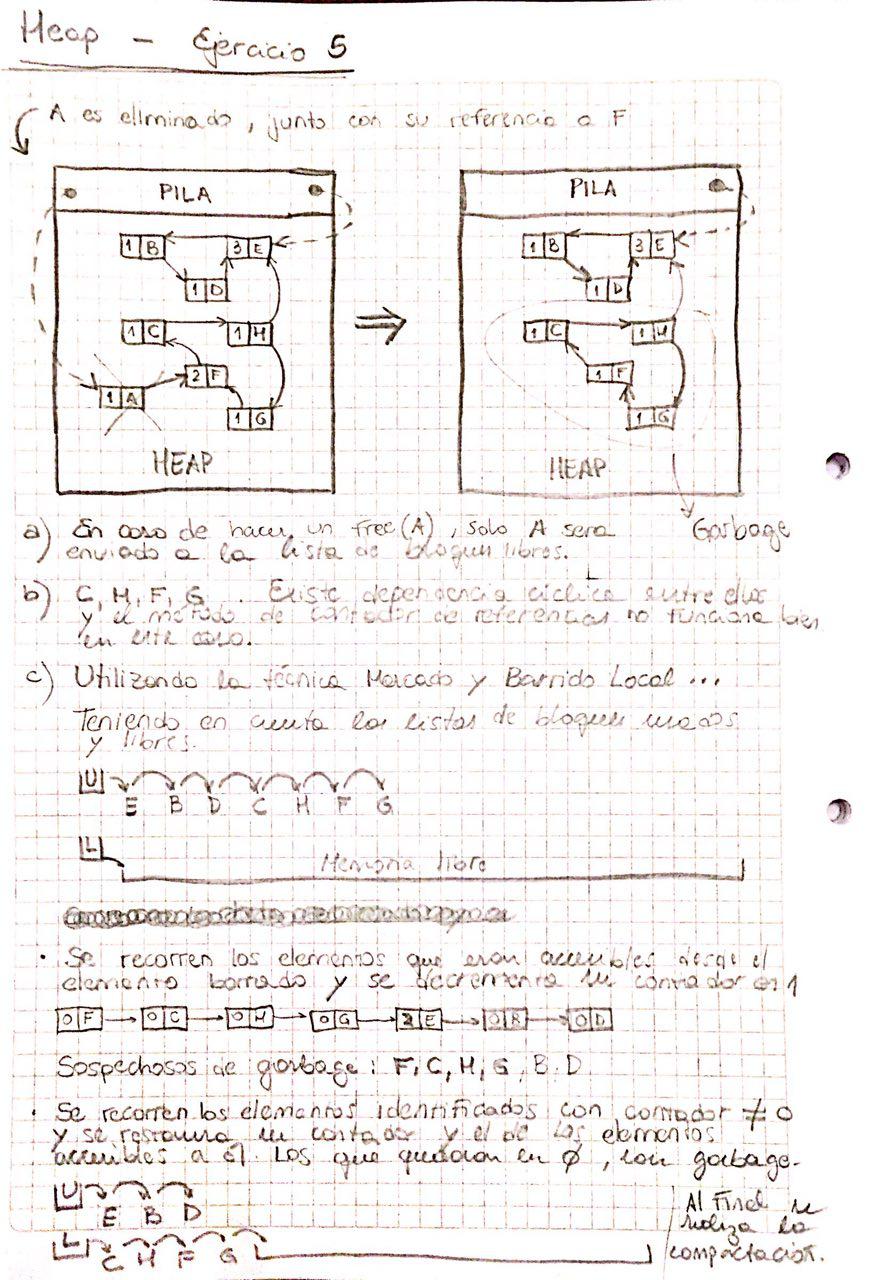 Heap - Ejercicio 5
A es eliminado, junto con su referencia a F
PILA
1 B
3 E
1 D
1 C
1 H
2 F
1 A
1 G
HEAP
PILA
1 B
3 E
1 D
1 C
1 H
1 F
1 G
HEAP
Garbage
a) En caso de hacer un free(A), solo A sera
enviado a la lista de bloques libres.
b) C, H, F, G. Existe dependencia cíclica entre ellos
y el método de contador de referencias no funciona bien
en este caso.
c) Utilizando la técnica Marcado y Barrido Local ...
Teniendo en cuenta las listas de bloques usados
y libres.
U
E B D C H F G
L
Memoria libre
· Se recorren los elementos que eran accesibles desde el
elemento borrado y se decrementa su contador en 1
0 F 0 C 0 H 0 G 2 E 0 B 0 D
Sospechosos de garbage: F, C, H, G, B, D
· Se recorren los elementos identificados con contador ≠ 0
y se restaura su contador y el de los elementos
accesibles a él. Los que quedaron en 0, son garbage.
U
E B D
L
C H F G
Al final se
realiza la
compactación.